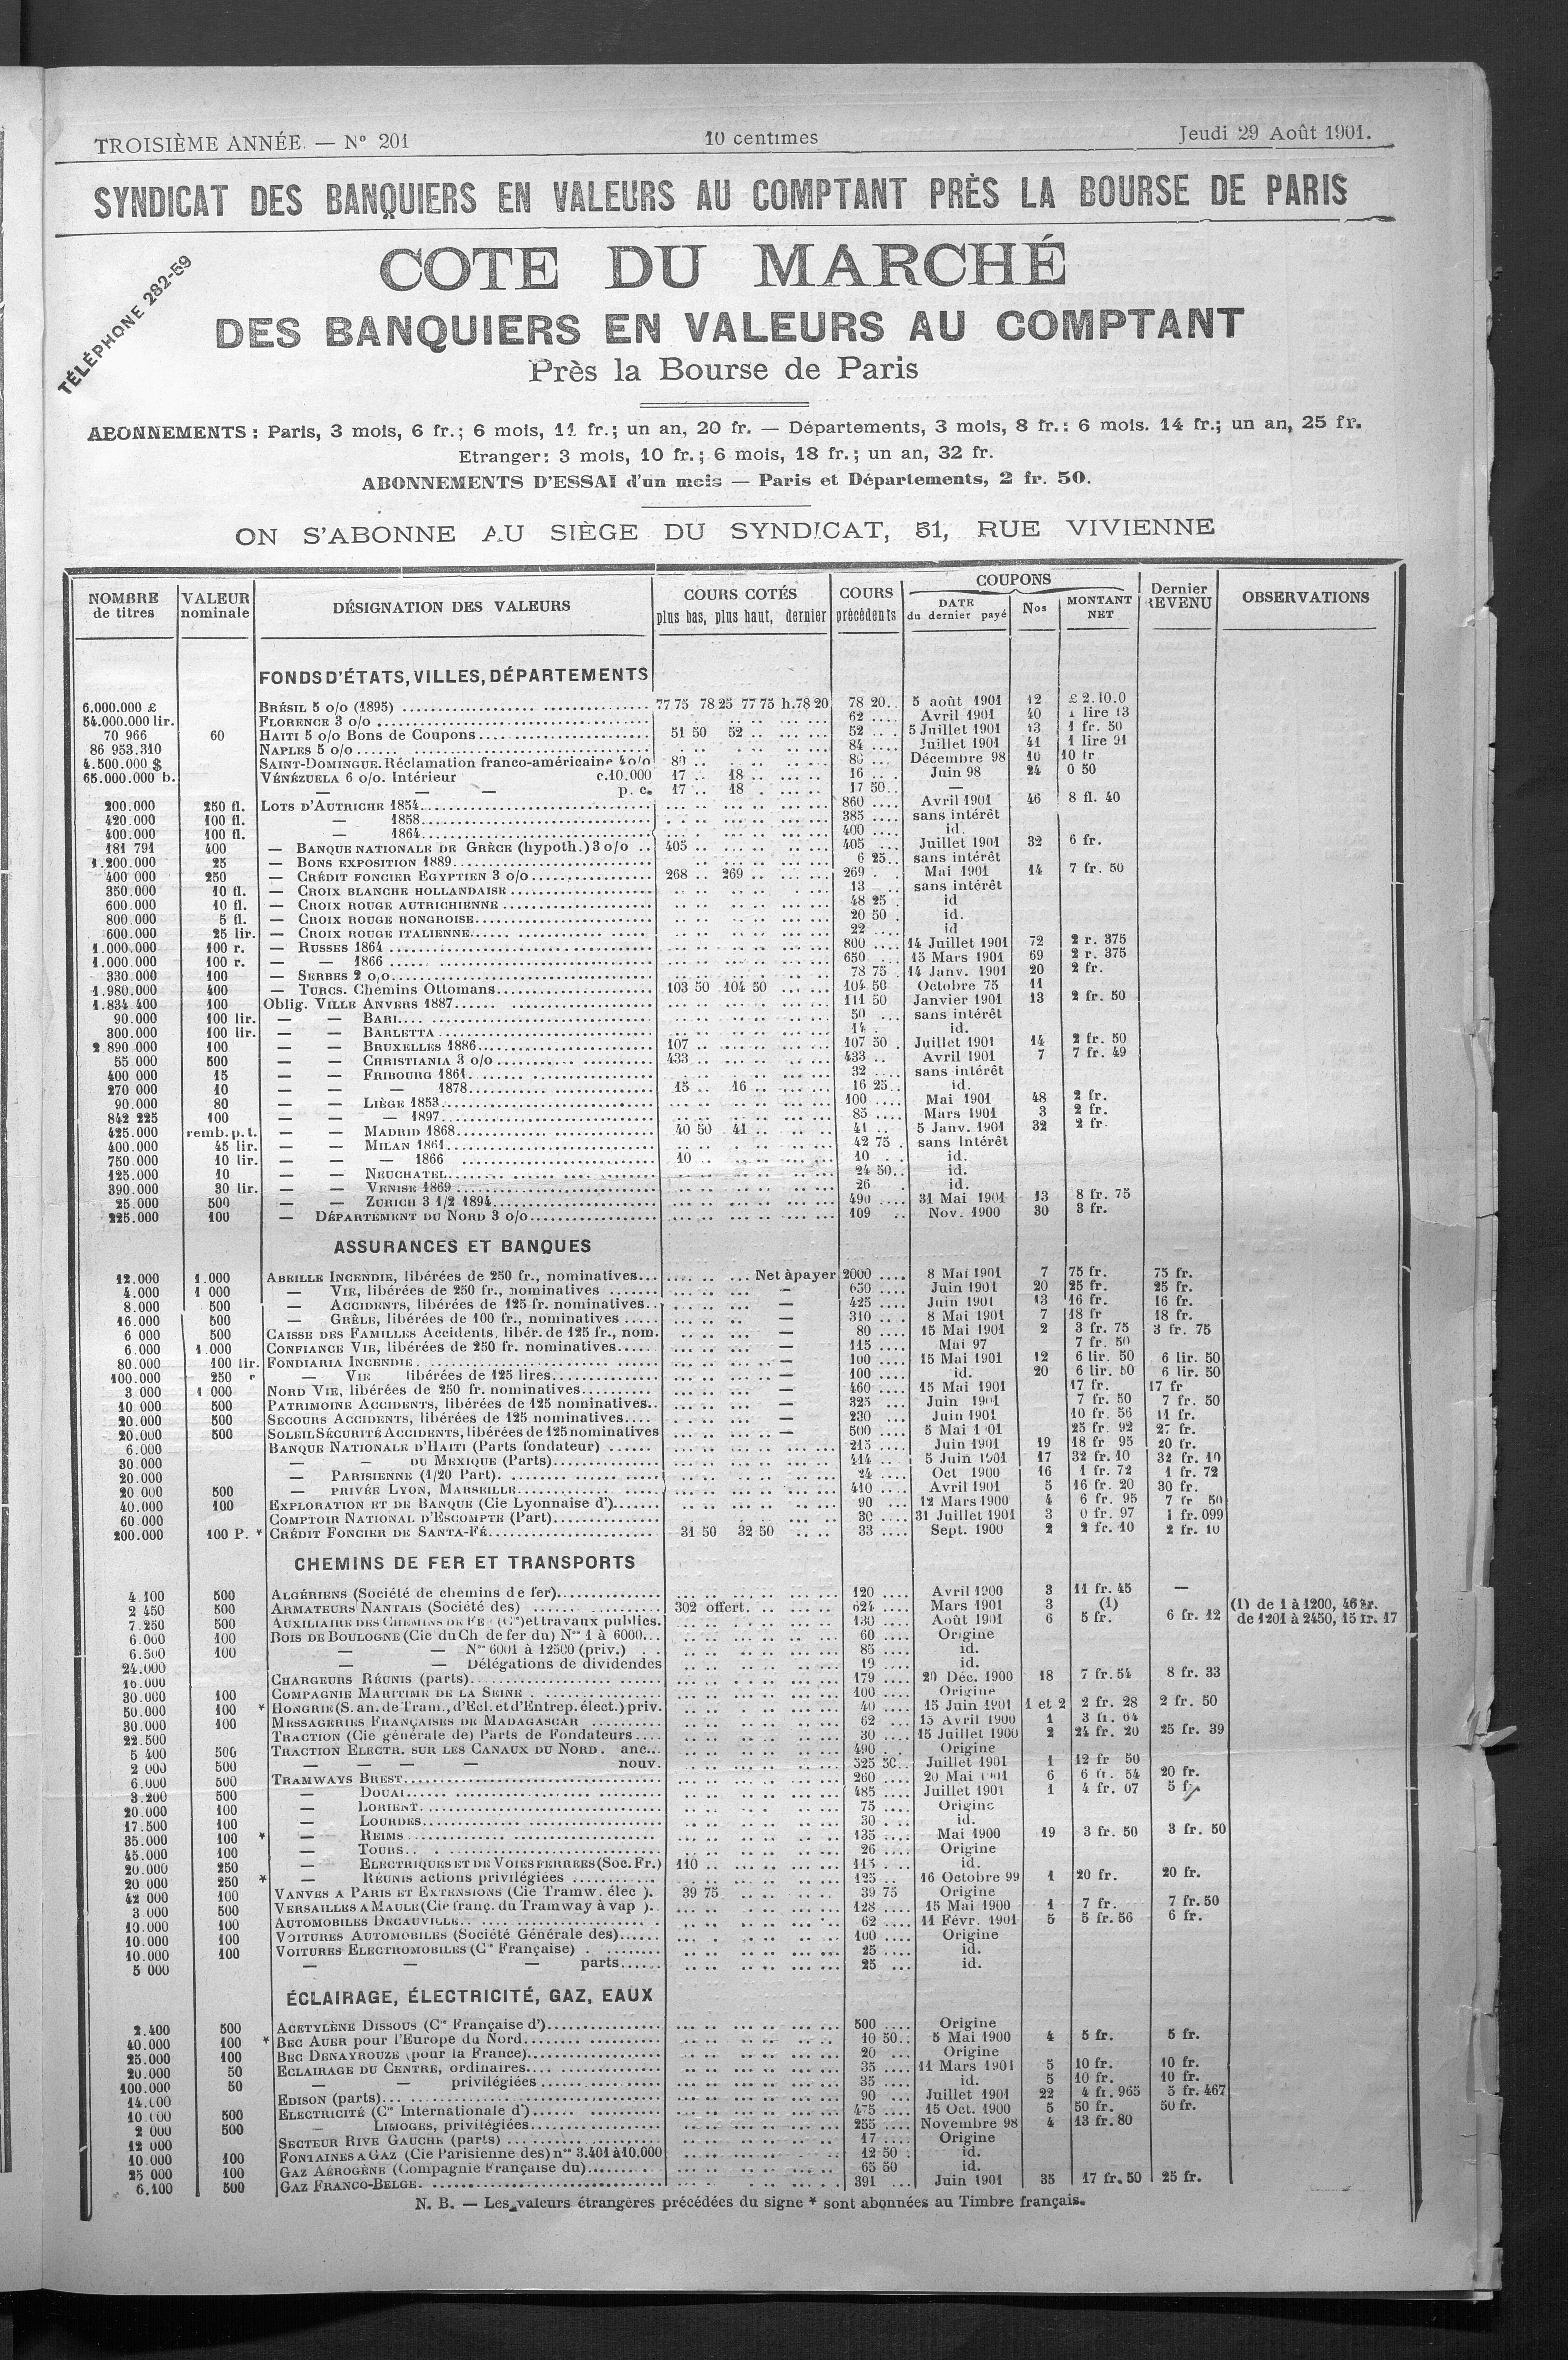 TROISIÈME ANNÉE. — N° 201 10 centimes Jeudi 29 Août 1901.
SYNDICAT DES BANQUIERS EN VALEURS AU COMPTANT PRÈS LA BOURSE DE PARIS
TÉLÉPHONE 282-59
COTE DU MARCHÉ
DES BANQUIERS EN VALEURS AU COMPTANT
Près la Bourse de Paris
ABONNEMENTS : Paris, 3 mois, 6 fr.; 6 mois, 11 fr.; un an, 20 fr. — Départements, 3 mois, 8 fr.: 6 mois. 14 fr.; un an, 25 fr.
Etranger: 3 mois, 10 fr.; 6 mois, 18 fr.; un an, 32 fr.
ABONNEMENTS D'ESSAI d'un mois — Paris et Départements, 2 fr. 50.
ON S'ABONNE AU SIÈGE DU SYNDICAT, 51, RUE VIVIENNE
NOMBRE de titres VALEUR nominale DÉSIGNATION DES VALEURS COURS COTÉS plus bas, plus haut, dernier COURS précédents COUPONS DATE du dernier payé Nos MONTANT NET Dernier REVENU OBSERVATIONS
FONDS D'ÉTATS, VILLES, DÉPARTEMENTS
6.000.000 £ BRÉSIL 5 o/o (1895) 77 75 78 25 77 75 h.78 20 78 20 5 août 1901 12 £ 2.10.0
54.000.000 lir. FLORENCE 3 o/o 62 Avril 1901 40 1 lire 13
70 966 60 HAITI 5 o/o Bons de Coupons 51 50 52 52 5 Juillet 1901 13 1 fr. 50
86 953.310 NAPLES 5 o/o 84 Juillet 1901 41 1 lire 91
4.500.000 $ SAINT-DOMINGUE. Réclamation franco-américaine 4 o/o 80 80 Décembre 98 10 10 fr
65.000.000 b. VÉNÉZUELA 6 o/o. Intérieur c.10.000 17 18 16 Juin 98 24 0 50
— — — p. c. 17 18 17 50 —
200.000 250 fl. LOTS D'AUTRICHE 1854 860 Avril 1901 46 8 fl. 40
420.000 100 fl. — 1858 385 sans intérêt
400.000 100 fl. — 1864 400 id.
181 791 400 — BANQUE NATIONALE DE GRÈCE (hypoth.) 3 o/o 405 405 Juillet 1901 32 6 fr.
1.200.000 25 — BONS EXPOSITION 1889 6 25 sans intérêt
400 000 250 — CRÉDIT FONCIER EGYPTIEN 3 o/o 268 269 269 Mai 1901 14 7 fr. 50
350.000 10 fl. — CROIX BLANCHE HOLLANDAISE 13 sans intérêt
600.000 10 fl. — CROIX ROUGE AUTRICHIENNE 48 25 id
800.000 5 fl. — CROIX ROUGE HONGROISE 20 50 id.
600.000 25 lir. — CROIX ROUGE ITALIENNE 22 id
1.000.000 100 r. — RUSSES 1864 800 14 Juillet 1901 72 2 r. 375
1.000.000 100 r. — — 1866 650 15 Mars 1901 69 2 r. 375
330.000 100 — SERBES 2 o/o 78 75 14 Janv. 1901 20 2 fr.
1.980.000 400 — TURCS. Chemins Ottomans 103 50 104 50 104 50 Octobre 75 11
1.834.400 100 Oblig. VILLE ANVERS 1887 111 50 Janvier 1901 13 2 fr. 50
90.000 100 lir. — — BARI 50 sans intérêt
300.000 100 lir. — — BARLETTA 14 id.
2.890 000 100 — — BRUXELLES 1886 107 107 50 Juillet 1901 14 2 fr. 50
55 000 500 — — CHRISTIANIA 3 o/o 433 433 Avril 1901 7 7 fr. 49
400 000 15 — — FRIBOURG 1861 32 sans intérêt
270 000 10 — — — 1878 15 16 16 25 id.
90.000 80 — — LIÈGE 1853 100 Mai 1901 48 2 fr.
842 225 100 — — — 1897 85 Mars 1901 3 2 fr.
425.000 remb. p. t. — — MADRID 1868 40 50 41 41 5 Janv. 1901 32 2 fr.
400.000 45 lir. — — MILAN 1861 42 75 sans intérêt
750.000 10 lir. — — — 1866 10 10 id.
125.000 10 — — NEUCHATEL 24 50 id.
390.000 30 lir. — — VENISE 1869 26 id.
25.000 500 — — ZURICH 3 1/2 1894 490 31 Mai 1901 13 8 fr. 75
225.000 100 — DÉPARTEMENT DU NORD 3 o/o 109 Nov. 1900 30 3 fr.
ASSURANCES ET BANQUES
12.000 1.000 ABEILLE INCENDIE, libérées de 250 fr., nominatives Net à payer 2000 8 Mai 1901 7 75 fr. 75 fr.
4.000 1 000 — VIE, libérées de 250 fr., nominatives — 650 Juin 1901 20 25 fr. 25 fr.
8.000 500 — ACCIDENTS, libérées de 125 fr. nominatives — 425 Juin 1901 13 16 fr. 16 fr.
16.000 500 — GRÊLE, libérées de 100 fr., nominatives — 310 8 Mai 1901 7 18 fr 18 fr.
6 000 500 CAISSE DES FAMILLES Accidents, libér. de 125 fr., nom. — 80 15 Mai 1901 2 3 fr. 75 3 fr. 75
6.000 1.000 CONFIANCE VIE, libérées de 250 fr. nominatives — 115 Mai 97 7 fr. 50
80.000 100 lir. FONDIARIA INCENDIE — 100 15 Mai 1901 12 6 lir. 50 6 lir. 50
100.000 250 — VIE libérées de 125 lires — 100 id. 20 6 lir. 50 6 lir. 50
3 000 1 000 NORD VIE, libérées de 250 fr. nominatives — 460 15 Mai 1901 17 fr. 17 fr
10 000 500 PATRIMOINE ACCIDENTS, libérées de 125 nominatives — 325 Juin 1901 7 fr. 50 7 fr. 50
20.000 500 SECOURS ACCIDENTS, libérées de 125 nominatives — 230 Juin 1901 10 fr. 56 11 fr.
20.000 500 SOLEIL SÉCURITÉ ACCIDENTS, libérées de 125 nominatives — 500 5 Mai 1901 25 fr. 92 27 fr.
6.000 BANQUE NATIONALE D'HAITI (Parts fondateur) 215 Juin 1901 19 18 fr 95 20 fr.
30.000 — — DU MEXIQUE (Parts) 414 5 Juin 1901 17 32 fr. 10 32 fr. 10
20.000 — PARISIENNE (1/20 Part) 24 Oct 1900 16 1 fr. 72 1 fr. 72
20 000 500 — PRIVÉE LYON, MARSEILLE 410 Avril 1901 5 16 fr. 20 30 fr.
40.000 100 EXPLORATION ET DE BANQUE (Cie Lyonnaise d') 90 12 Mars 1900 4 6 fr. 95 7 fr 50
60.000 COMPTOIR NATIONAL D'ESCOMPTE (Part) 30 31 Juillet 1901 3 0 fr. 97 1 fr. 099
200.000 100 P. * CRÉDIT FONCIER DE SANTA-FÉ 31 50 32 50 33 Sept. 1900 2 2 fr. 10 2 fr. 10
CHEMINS DE FER ET TRANSPORTS
4 100 500 ALGÉRIENS (Société de chemins de fer) 120 Avril 1900 3 11 fr. 45 —
2 450 500 ARMATEURS NANTAIS (Société des) 302 offert. 624 Mars 1901 3 (1) (1) de 1 à 1200, 46 fr.
7.250 500 AUXILIAIRE DES CHEMINS DE FER (Cie) et travaux publics. 130 Août 1901 6 5 fr. 6 fr. 12 de 1201 à 2450, 15 fr. 17
6.000 100 BOIS DE BOULOGNE (Cie du Ch de fer du) Nos 1 à 6000 60 Origine
6.500 100 — — Nos 6001 à 12500 (priv.) 85 id.
24.000 — — Délégations de dividendes 19 id.
16.000 CHARGEURS RÉUNIS (parts) 179 20 Déc. 1900 18 7 fr. 54 8 fr. 33
30.000 100 COMPAGNIE MARITIME DE LA SEINE 100 Origine
50.000 100 * HONGRIE (S. an. de Tram., d'Ecl. et d'Entrep. élect.) priv. 40 15 Juin 1901 1 et 2 2 fr. 28 2 fr. 50
30.000 100 MESSAGERIES FRANÇAISES DE MADAGASCAR 62 15 Avril 1900 1 3 fr. 64
22.500 TRACTION (Cie générale de) Parts de Fondateurs 30 15 Juillet 1900 2 24 fr. 20 25 fr. 39
5 400 500 TRACTION ELECTR. SUR LES CANAUX DU NORD. anc. 490 Origine
2 000 500 — — — — nouv. 525 50 Juillet 1901 1 12 fr 50
6.000 500 TRAMWAYS BREST 260 20 Mai 1901 6 6 fr. 54 20 fr.
3.200 500 — DOUAI 485 Juillet 1901 1 4 fr. 07 5 fr
20.000 100 — LORIENT 75 Origine
17.500 100 — LOURDES 30 id.
35.000 100 * — REIMS 135 Mai 1900 19 3 fr. 50 3 fr. 50
45.000 100 — TOURS 26 Origine
20.000 250 — ELECTRIQUES ET DE VOIES FERRÉES (Soc. Fr.) 110 113 id.
20 000 250 * — RÉUNIS actions privilégiées 125 16 Octobre 99 1 20 fr. 20 fr.
42 000 100 VANVES A PARIS ET EXTENSIONS (Cie Tramw. élec ). 39 75 39 75 Origine
3 000 500 VERSAILLES A MAULE (Cie franç. du Tramway à vap ). 128 15 Mai 1900 1 7 fr. 7 fr. 50
10.000 100 AUTOMOBILES DECAUVILLE 62 11 Févr. 1901 5 5 fr. 56 6 fr.
10.000 100 VOITURES AUTOMOBILES (Société Générale des) 100 Origine
10.000 100 VOITURES ELECTROMOBILES (Cie Française) 25 id.
5 000 — — — parts 25 id.
ÉCLAIRAGE, ÉLECTRICITÉ, GAZ, EAUX
2.400 500 ACETYLÈNE DISSOUS (Cie Française d') 500 Origine
40.000 100 * BEC AUER pour l'Europe du Nord 10 50 5 Mai 1900 4 5 fr. 5 fr.
25.000 100 BEC DENAYROUZE (pour la France) 20 Origine
20.000 50 ECLAIRAGE DU CENTRE, ordinaires 35 11 Mars 1901 5 10 fr. 10 fr.
100.000 50 — — privilégiées 35 id. 5 10 fr. 10 fr.
14.000 EDISON (parts) 90 Juillet 1901 22 4 fr. 965 5 fr. 467
10 000 500 ELECTRICITÉ (Cie Internationale d') 475 15 Oct. 1900 5 50 fr. 50 fr.
2 000 500 — LIMOGES, privilégiées 255 Novembre 98 4 13 fr. 80
12 000 SECTEUR RIVE GAUCHE (parts) 17 Origine
10.000 100 FONTAINES A GAZ (Cie Parisienne des) nos 3.401 à 10.000 12 50 id.
25 000 100 GAZ AÉROGÈNE (Compagnie Française du) 65 50 id.
6.100 500 GAZ FRANCO-BELGE 391 Juin 1901 35 17 fr. 50 25 fr.
N. B. — Les valeurs étrangères précédées du signe * sont abonnées au Timbre français.